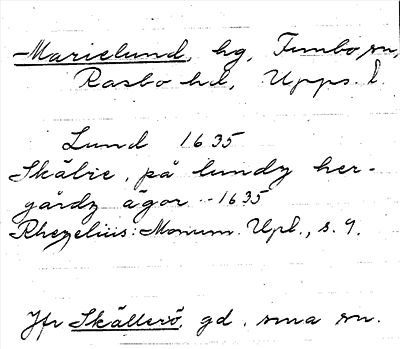 Marielund, hg, Funbo sn,
Rasbo hd, Upps. l.
Lund 1635
Skälie, på lundz her-
gårdz ägor - 1635
Rhezelius: Monum. Upl., s. 9.
Jfr Skällerö, gd, sma sn.